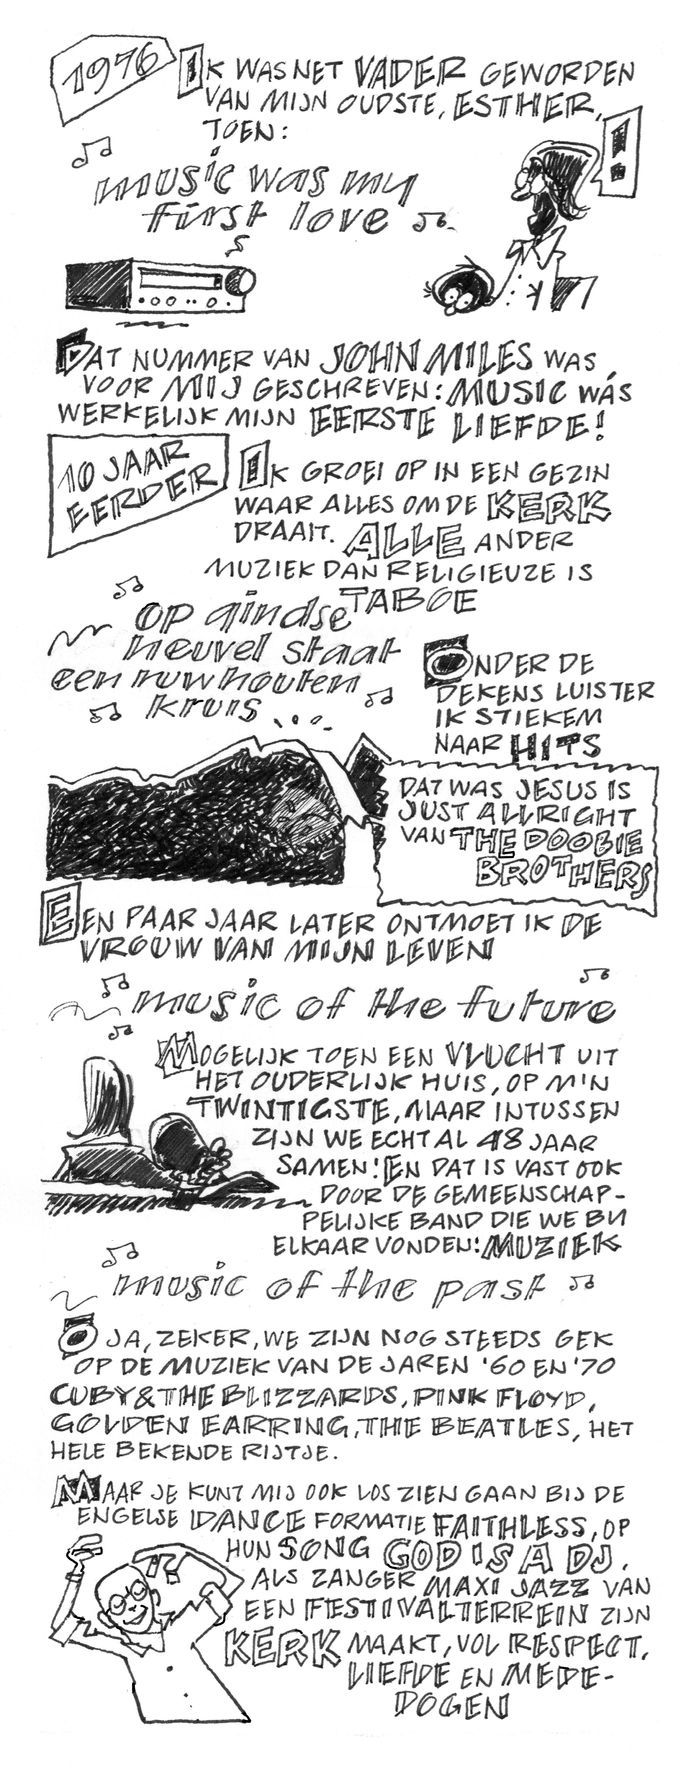 1976
IK WAS NET VADER GEWORDEN
VAN MIJN OUDSTE, ESTHER,
TOEN:
!
music was my
first love
DAT NUMMER VAN JOHN MILES WAS
VOOR MIJ GESCHREVEN: MUSIC WÁS
WERKELIJK MIJN EERSTE LIEFDE!
10 JAAR
EERDER
IK GROEI OP IN EEN GEZIN
WAAR ALLES OM DE KERK
DRAAIT. ALLE ANDER
MUZIEK DAN RELIGIEUZE IS
TABOE
op gindse
heuvel staat
een ruwhouten
kruis...
ONDER DE
DEKENS LUISTER
IK STIEKEM
NAAR HITS
DAT WAS JESUS IS
JUST ALLRIGHT
VAN THE DOOBIE
BROTHERS
EEN PAAR JAAR LATER ONTMOET IK DE
VROUW VAN MIJN LEVEN
music of the future
MOGELIJK TOEN EEN VLUCHT UIT
HET OUDERLIJK HUIS, OP M'N
TWINTIGSTE, MAAR INTUSSEN
ZIJN WE ECHT AL 48 JAAR
SAMEN! EN DAT IS VAST OOK
DOOR DE GEMEENSCHAP-
PELIJKE BAND DIE WE BIJ
ELKAAR VONDEN: MUZIEK
music of the past
O JA, ZEKER, WE ZIJN NOG STEEDS GEK
OP DE MUZIEK VAN DE JAREN '60 EN '70
CUBY & THE BLIZZARDS, PINK FLOYD,
GOLDEN EARRING, THE BEATLES, HET
HELE BEKENDE RIJTJE.
MAAR JE KUNT MIJ OOK LOS ZIEN GAAN BIJ DE
ENGELSE DANCE FORMATIE FAITHLESS, OP
HUN SONG GOD IS A DJ.
ALS ZANGER MAXI JAZZ VAN
EEN FESTIVALTERREIN ZIJN
KERK MAAKT, VOL RESPECT,
LIEFDE EN MEDE-
DOGEN